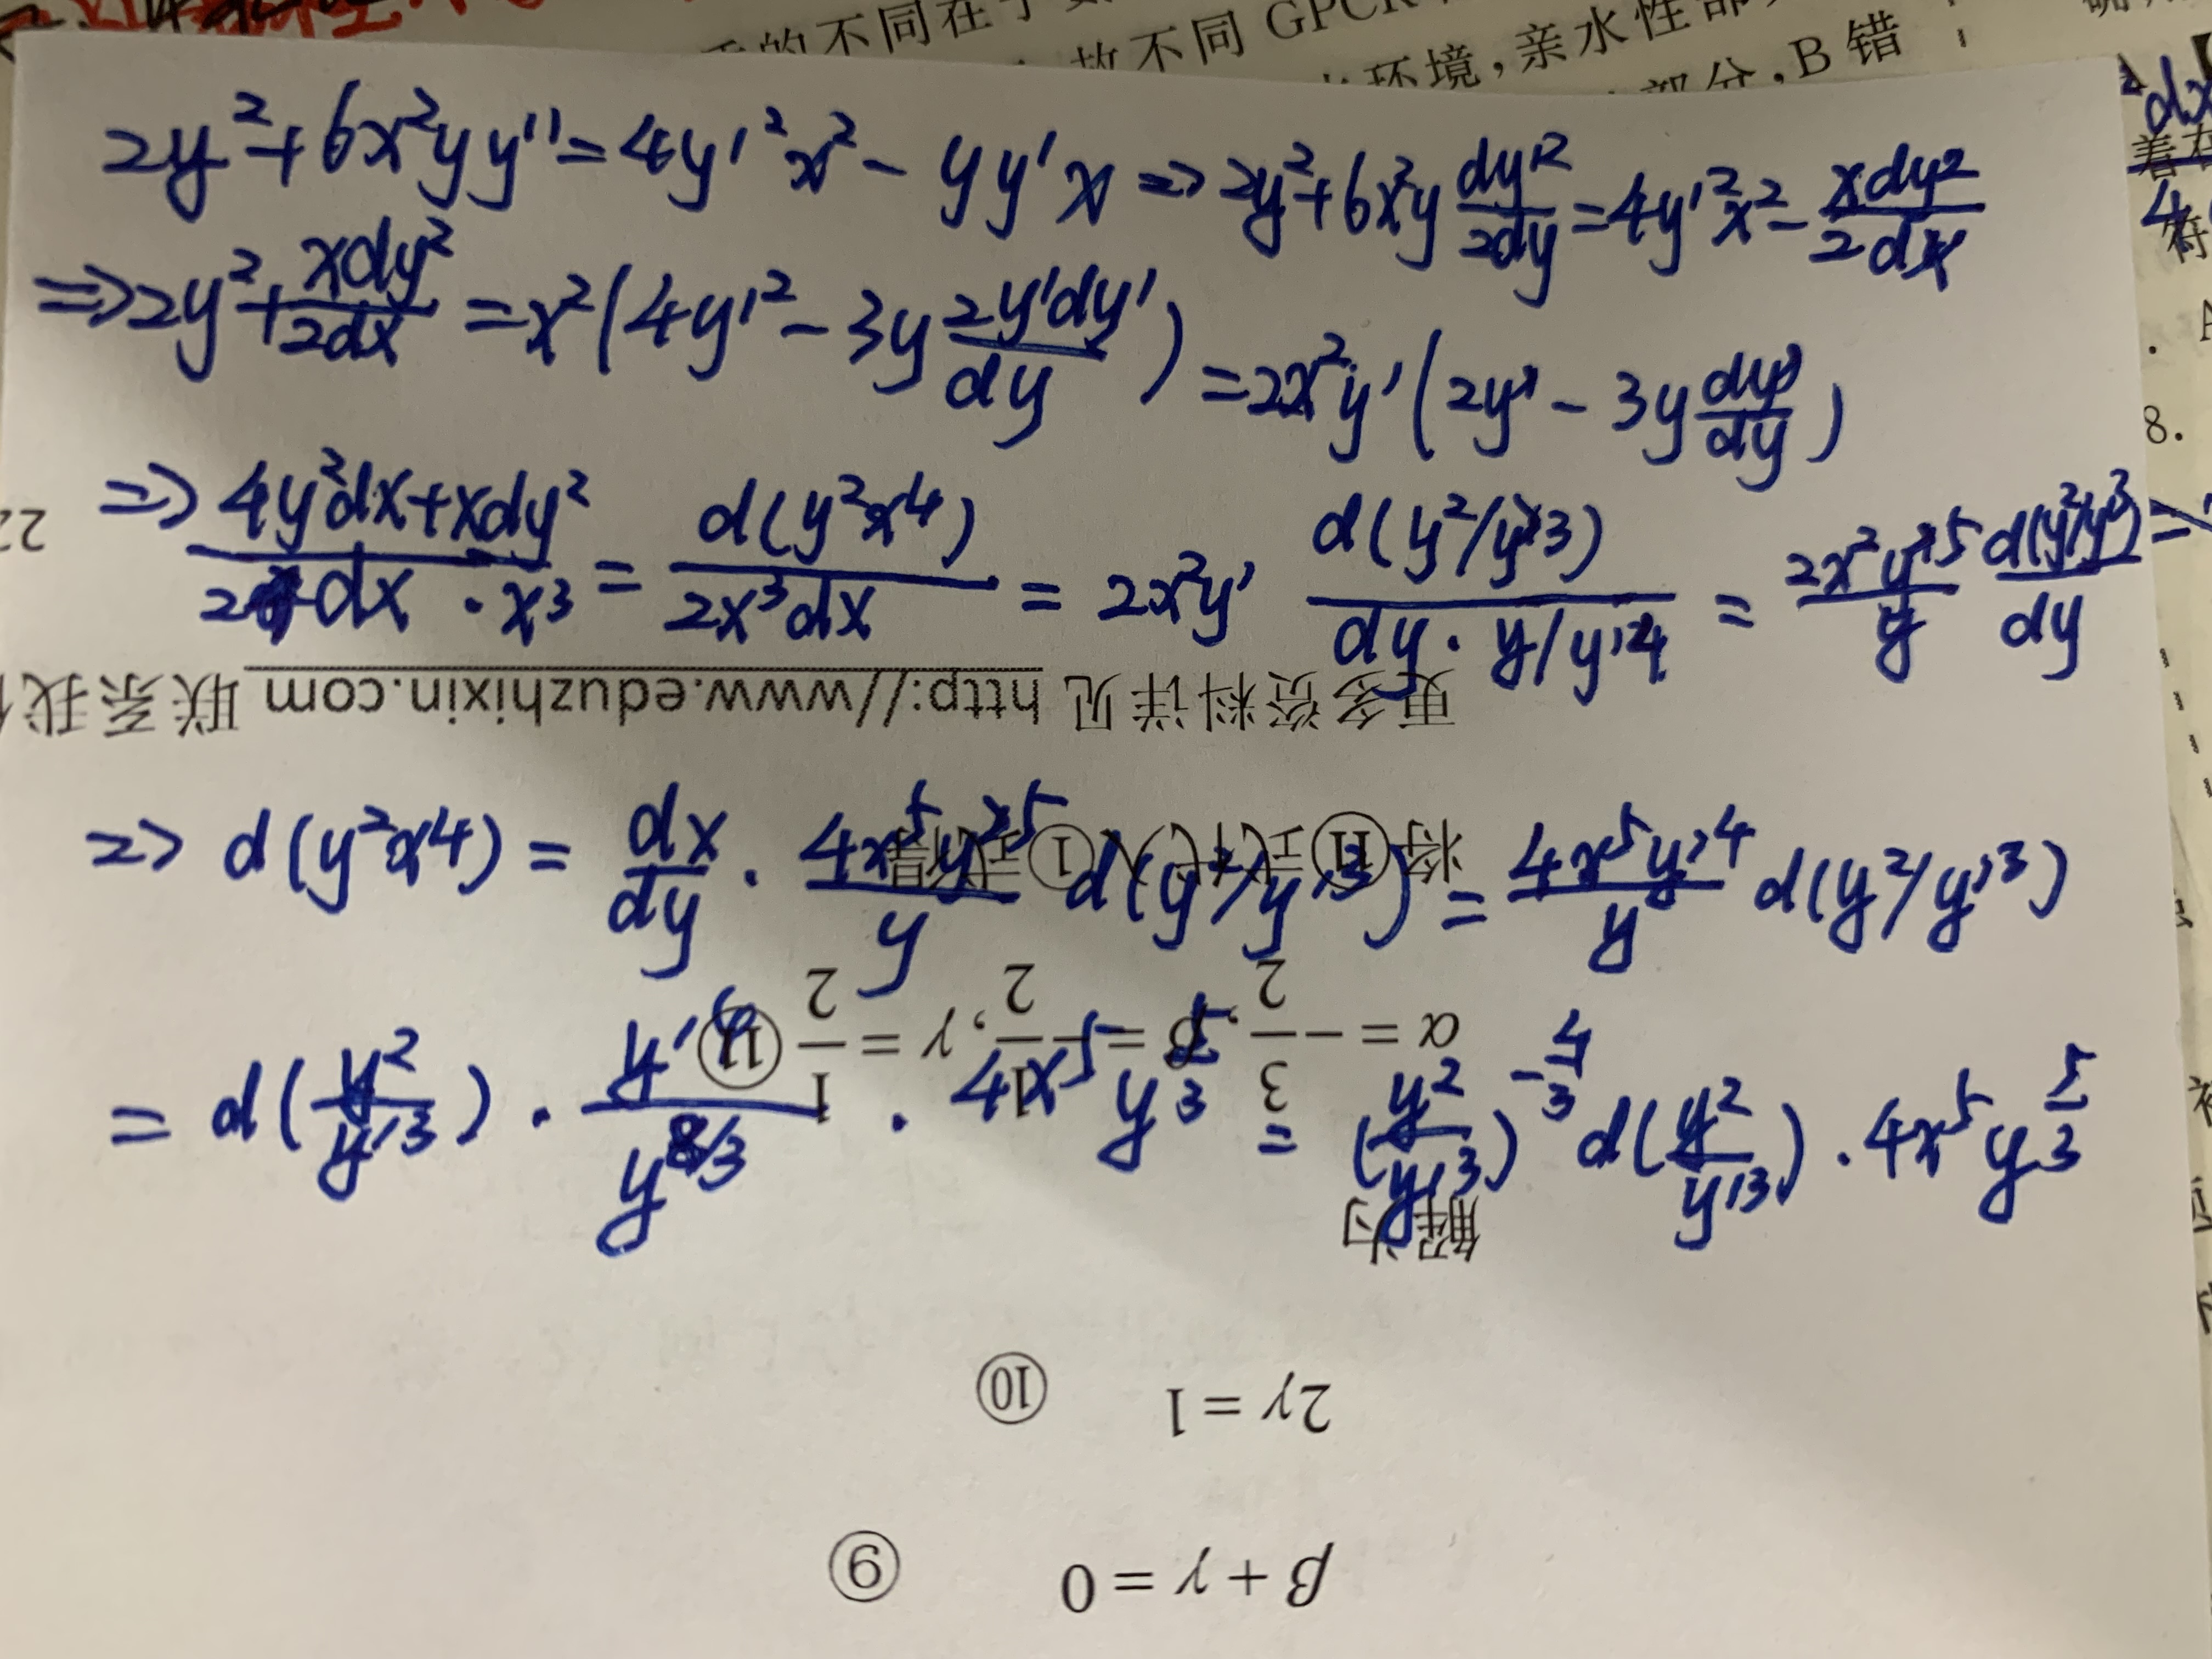 的不同在于
故不同 GPCR
环境,亲水性部
部分,B 错
2y²+6x²yy''=4y'²x²-yy'x => 2y²+6x²y dy'²/2dy=4y'²x²-xdy²/2dx
=>2y²+xdy²/2dx=x²(4y'²-3y 2y'dy'/dy)=2x²y'(2y'-3y dy'/dy)
8.
=> 4y²dx+xdy²/2dx·x³=d(y²x⁴)/2x³dx=2x²y' d(y²/y'³)/dy·y/y'⁴=2x²y'⁵/y d(y²/y'³)/dy=
22
更多资料详见 http://www.eduzhixin.com 联系我
=> d(y²x⁴)=dx/dy·4x⁵y'⁵/y d(y²/y'³)=4x⁵y'⁴/y d(y²/y'³)
将⑪式代入①式得
=d(y²/y'³)·y'⁴/y^8/3·4x⁵y^5/3=(y²/y'³)^-4/3 d(y²/y'³)·4x⁵y^5/3
α=-3/2,β=-1/2,γ=1/2 ⑪
解为
2γ=1 ⑩
β+γ=0 ⑨